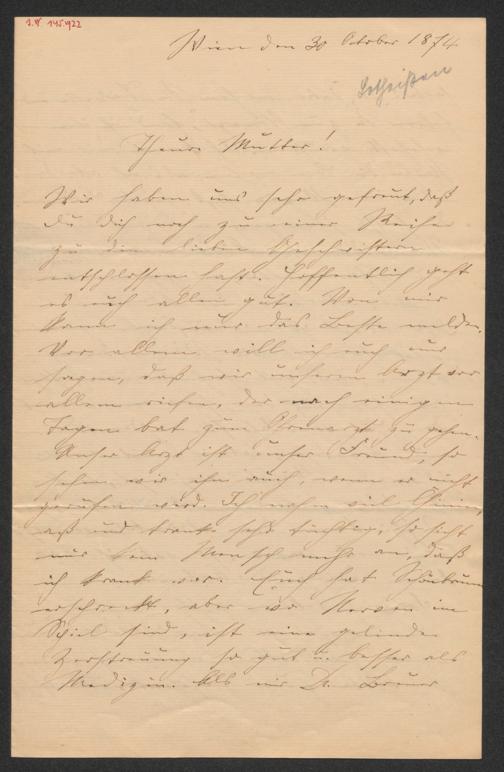 I.N. 145.922
Wien den 30 October 1874
Theure Mutter!
Wir haben uns sehr gefreut, daß
Du Dich noch zu einer Reise
zu den lieben Geschwistern
entschlossen hast. Hoffentlich geht
es euch allen gut. Von mir
kann ich nur das Beste melden.
Vor allem will ich euch nur
sagen, daß wir unseren Arzt vor
allem riefen, der nach einigen
Tagen bat zum Ohrenarzt zu gehen.
Unser Arzt ist unser Freund, so
sehen wir ihn auch, wenn er nicht
gerufen wird. Ich nahm viel Chinin,
aß und trank sehr tüchtig, so sieht
mir kein Mensch mehr an, daß
ich krank war. Euch hat Schönbrunn
erschreckt, aber wo Nerven im
Spiel sind, ist eine gelinde
Zerstreuung so gut u. besser als
Medizin. Als mir Dr. Breuer